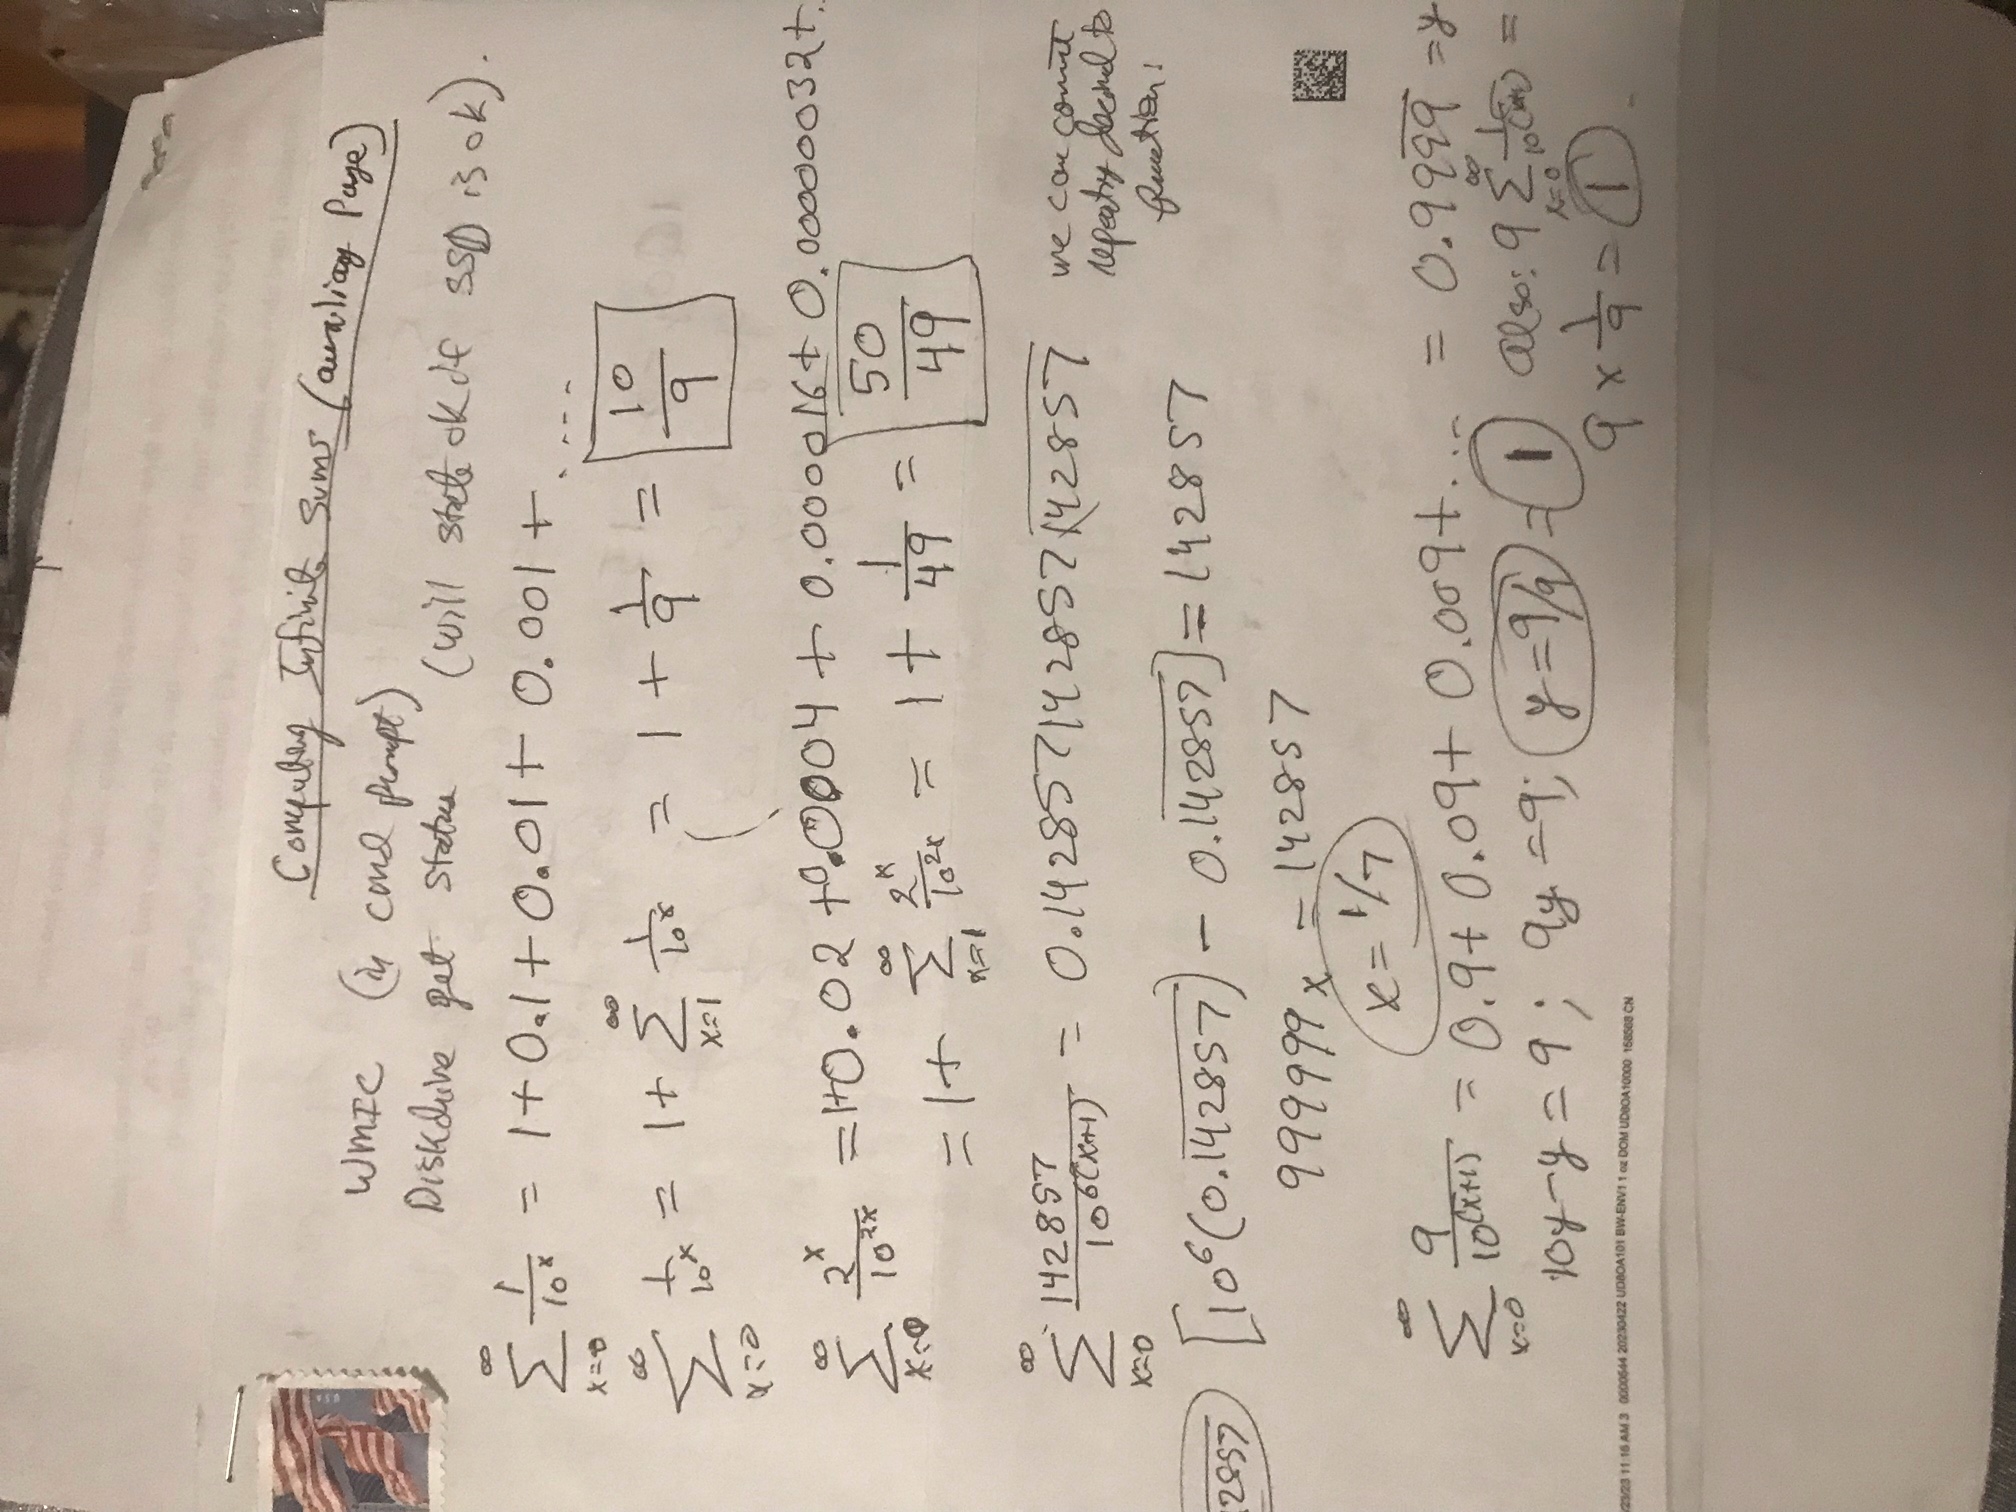 Computing Infinite Sums (auxiliary Page)
WMIC (in cmd prompt)
Diskdrive get status (will state ok if SSD is ok).
∞ ∑ x=0 1/10^x = 1 + 0.1 + 0.01 + 0.001 + ....
∞ ∑ x=0 1/10^x = 1 + ∞ ∑ x=1 1/10^x = 1 + 1/9 = 10/9
∞ ∑ x=0 2^x/10^2x = 1+0.02 + 0.0004 + 0.000016 + 0.00000032+..
= 1 + ∞ ∑ x=1 2^x/10^2x = 1 + 1/49 = 50/49
∞ ∑ x=0 142857/10^6(x+1) = 0.142857142857142857
we can convert
repeating decimal to
fraction!
2857
[10^6(0.142857) - 0.142857] = 142857
999999x = 142857
x = 1/7
∞ ∑ x=0 9/10^(x+1) = 0.9 + 0.09 + 0.009 + .... = 0.9999 = y
10y-y = 9; 9y = 9; y = 9/9 = 1 also: 9 ∞ ∑ x=0 1/10^(x+1) =
9 x 1/9 = 1.
/23/23 11:16 AM 3 0000644 20230422 UD80A101 BW-ENV1 1 oz DOM UD80A10000 158568 CN